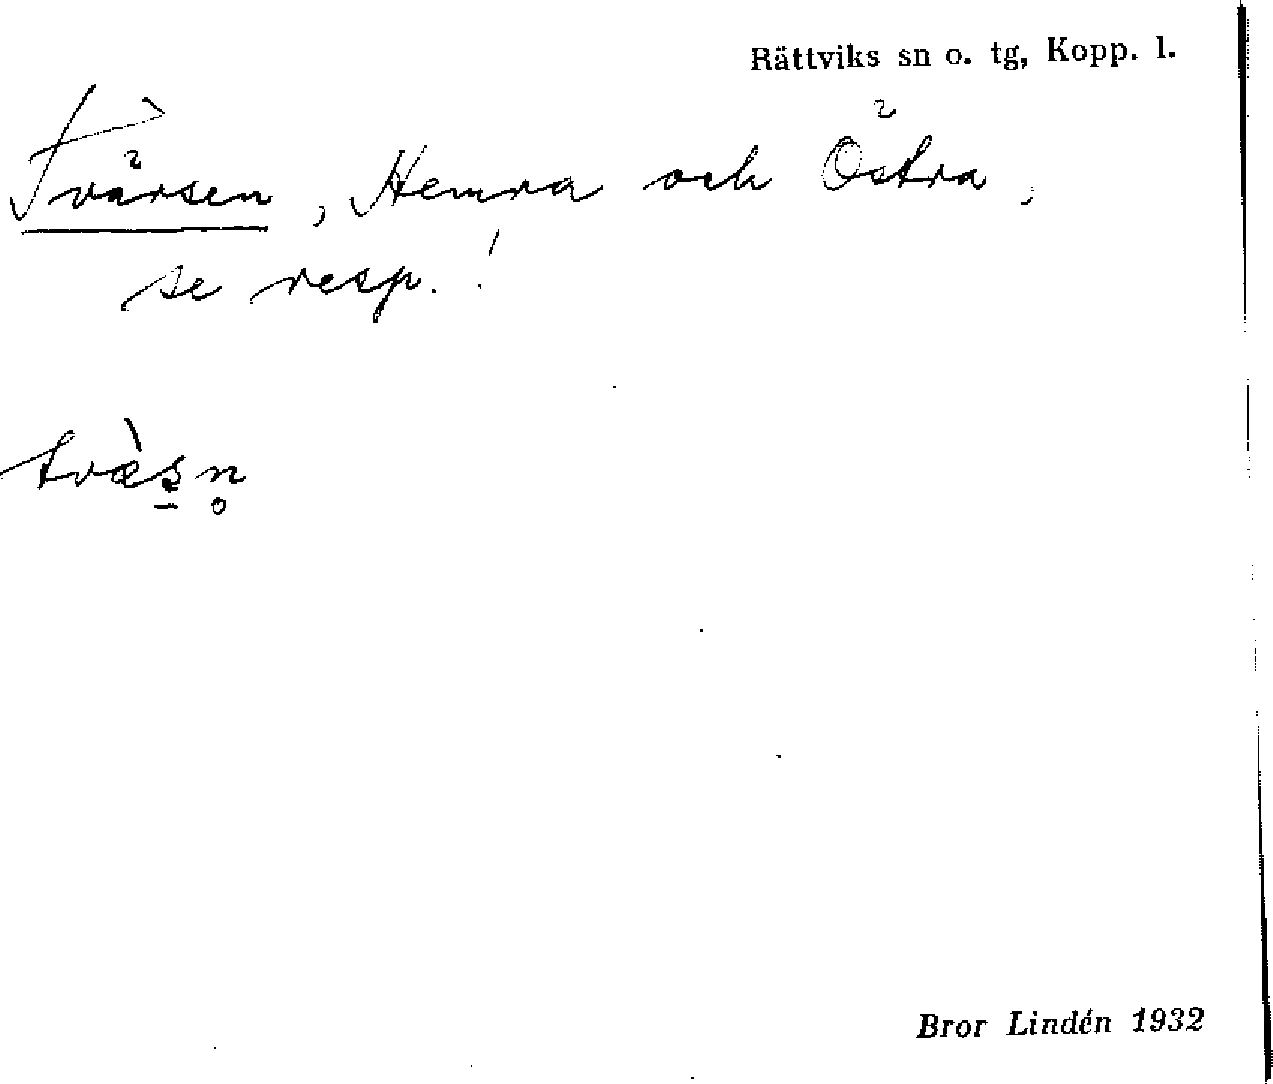 Rättviks sn o. tg, Kopp. l.
Tvärsen, Hemra och Östra,
se resp.!
tvæ̀s̠n̥
Bror Lindén 1932